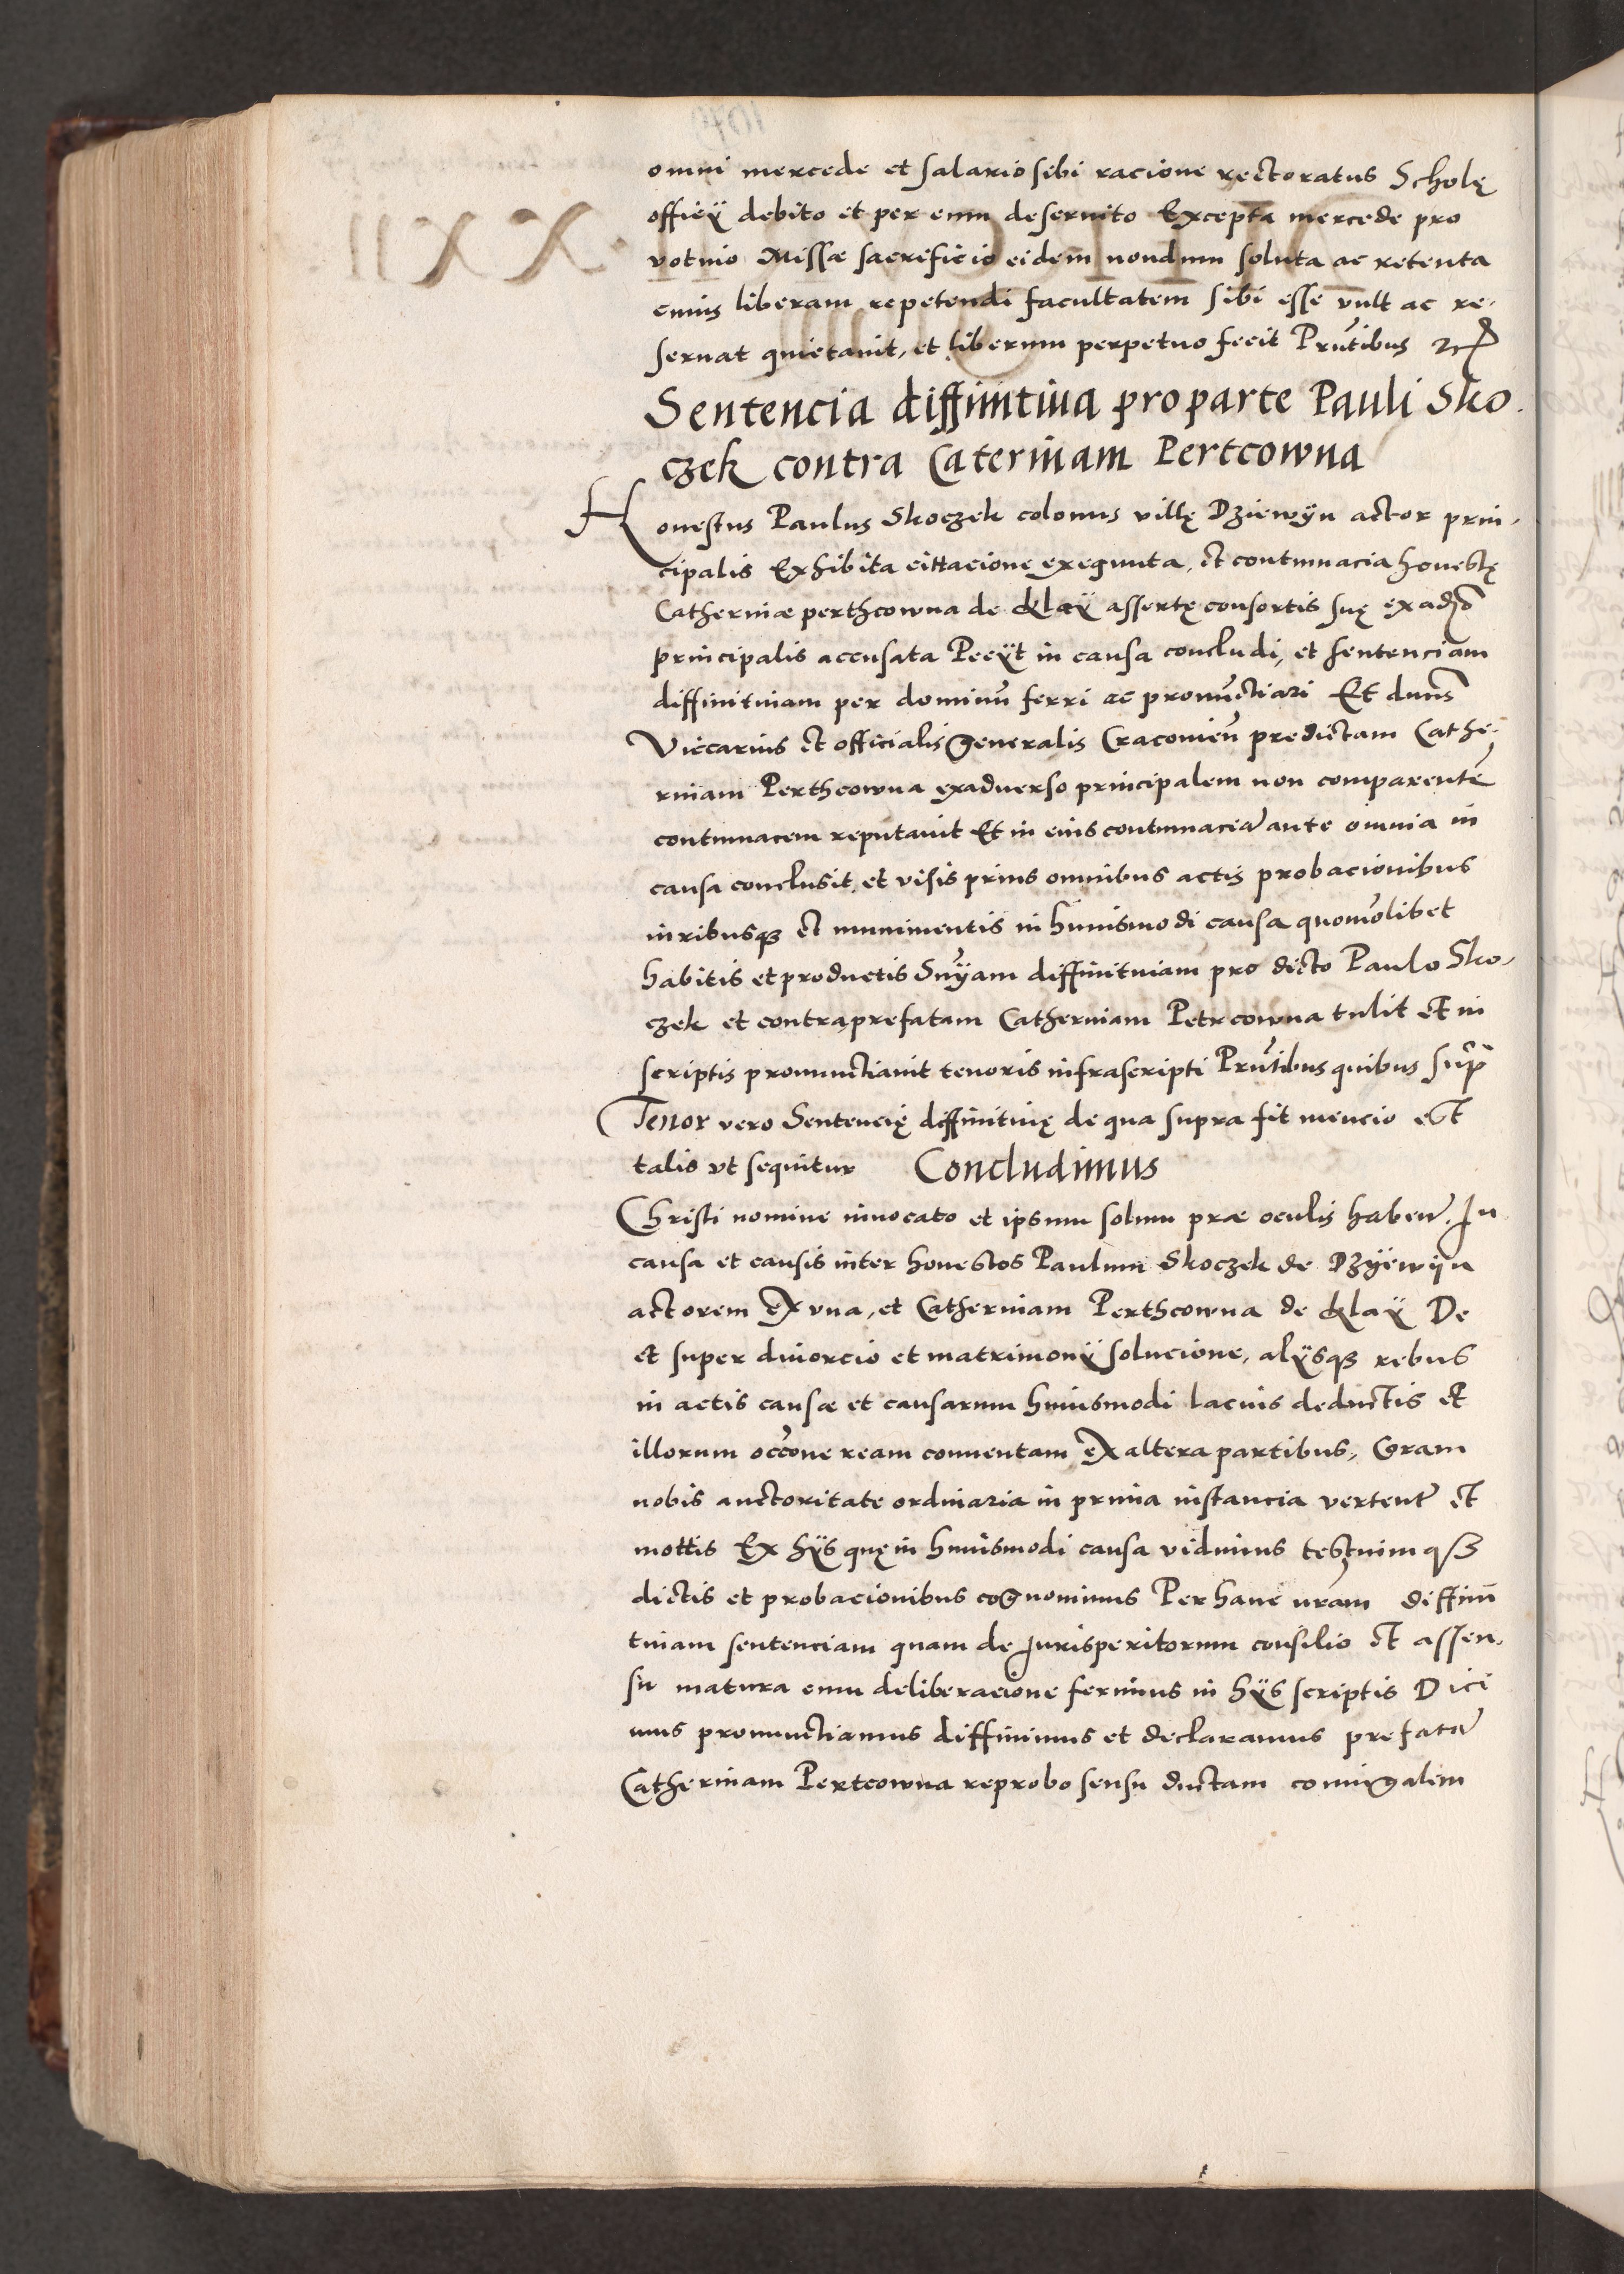 omni mercede et salario sibi racione rectoratus Scholę
officÿ debito et per eum deservito Excepta mercede pro
votivo Missæ sacrificio eidem nondum soluta ac retenta
cuius liberam repetendi facultatem sibi esse vult ac re-
servat quietavit, et liberum perpetuo fecit Prñtibus
Sentencia diffinitiva pro parte Pauli Sko-
czek contra Caterinam Pertcowna
Honestus Paulus Skoczek colonus villę Dziewÿn actor prin-
cipalis Exhibita cittacione exequuta, et contumacia honestę
Catherinæ perthcowna de Klaÿ assertę consortis suę exadṽso
principalis accusata Pecÿt in causa concludi, et sentenciam
diffinitivam per dominũ ferri ac pronũctiari Et dñus
Viccarius et officialis Generalis Cracovieñ predictam Cathe-
rinam Perthcowna exadverso principalem non comparentẽ
contumacem reputavit Et in eius contumaciã ante omnia in
causa conclusit, et visis prius omnibus actis probacionibus
iuribusqꝫ et munimentis in huiusmodi causa quomõlibet
habitis et productis Sñÿam diffinitivam pro dicto Paulo Sko-
czek et contra prefatam Catherinam Petrcowna tulit et in
scriptis pronunctiavit tenoris infrascripti Prñtibus quibus supᷓ
Tenor vero Sentencię diffinitivę de qua supra fit mencio est
talis vt sequitur Concludimus
Christi nomine invocato et ipsum solum præ oculis habeñ. In
causa et causis inter honestos Paulum Skoczek de Dzÿewÿn
actorem ex vna, et Catherinam Perthcowna de Klaÿ De
et super divorcio et matrimonÿ solucione, alÿsqꝫ rebus
in actis causæ et causarum huiusmodi lacius deductis et
illorum occõne ream conventam ex altera partibus, Coram
nobis auctoritate ordinaria in prima instancia verteñt et
mottis Ex hÿs quę in huiusmodi causa vidimus testiumqꝫ
dictis et probacionibus cognovimus Per hanc nr̃am diffini
tivam sentenciam quam de Jurisperitorum consilio et assen-
su matura cum deliberacione ferimus in hÿs scriptis Dici
mus pronunctiamus diffinimus et declaramus prefatã
Catherinam Pertcowna reprobo sensu ductam coniugalem